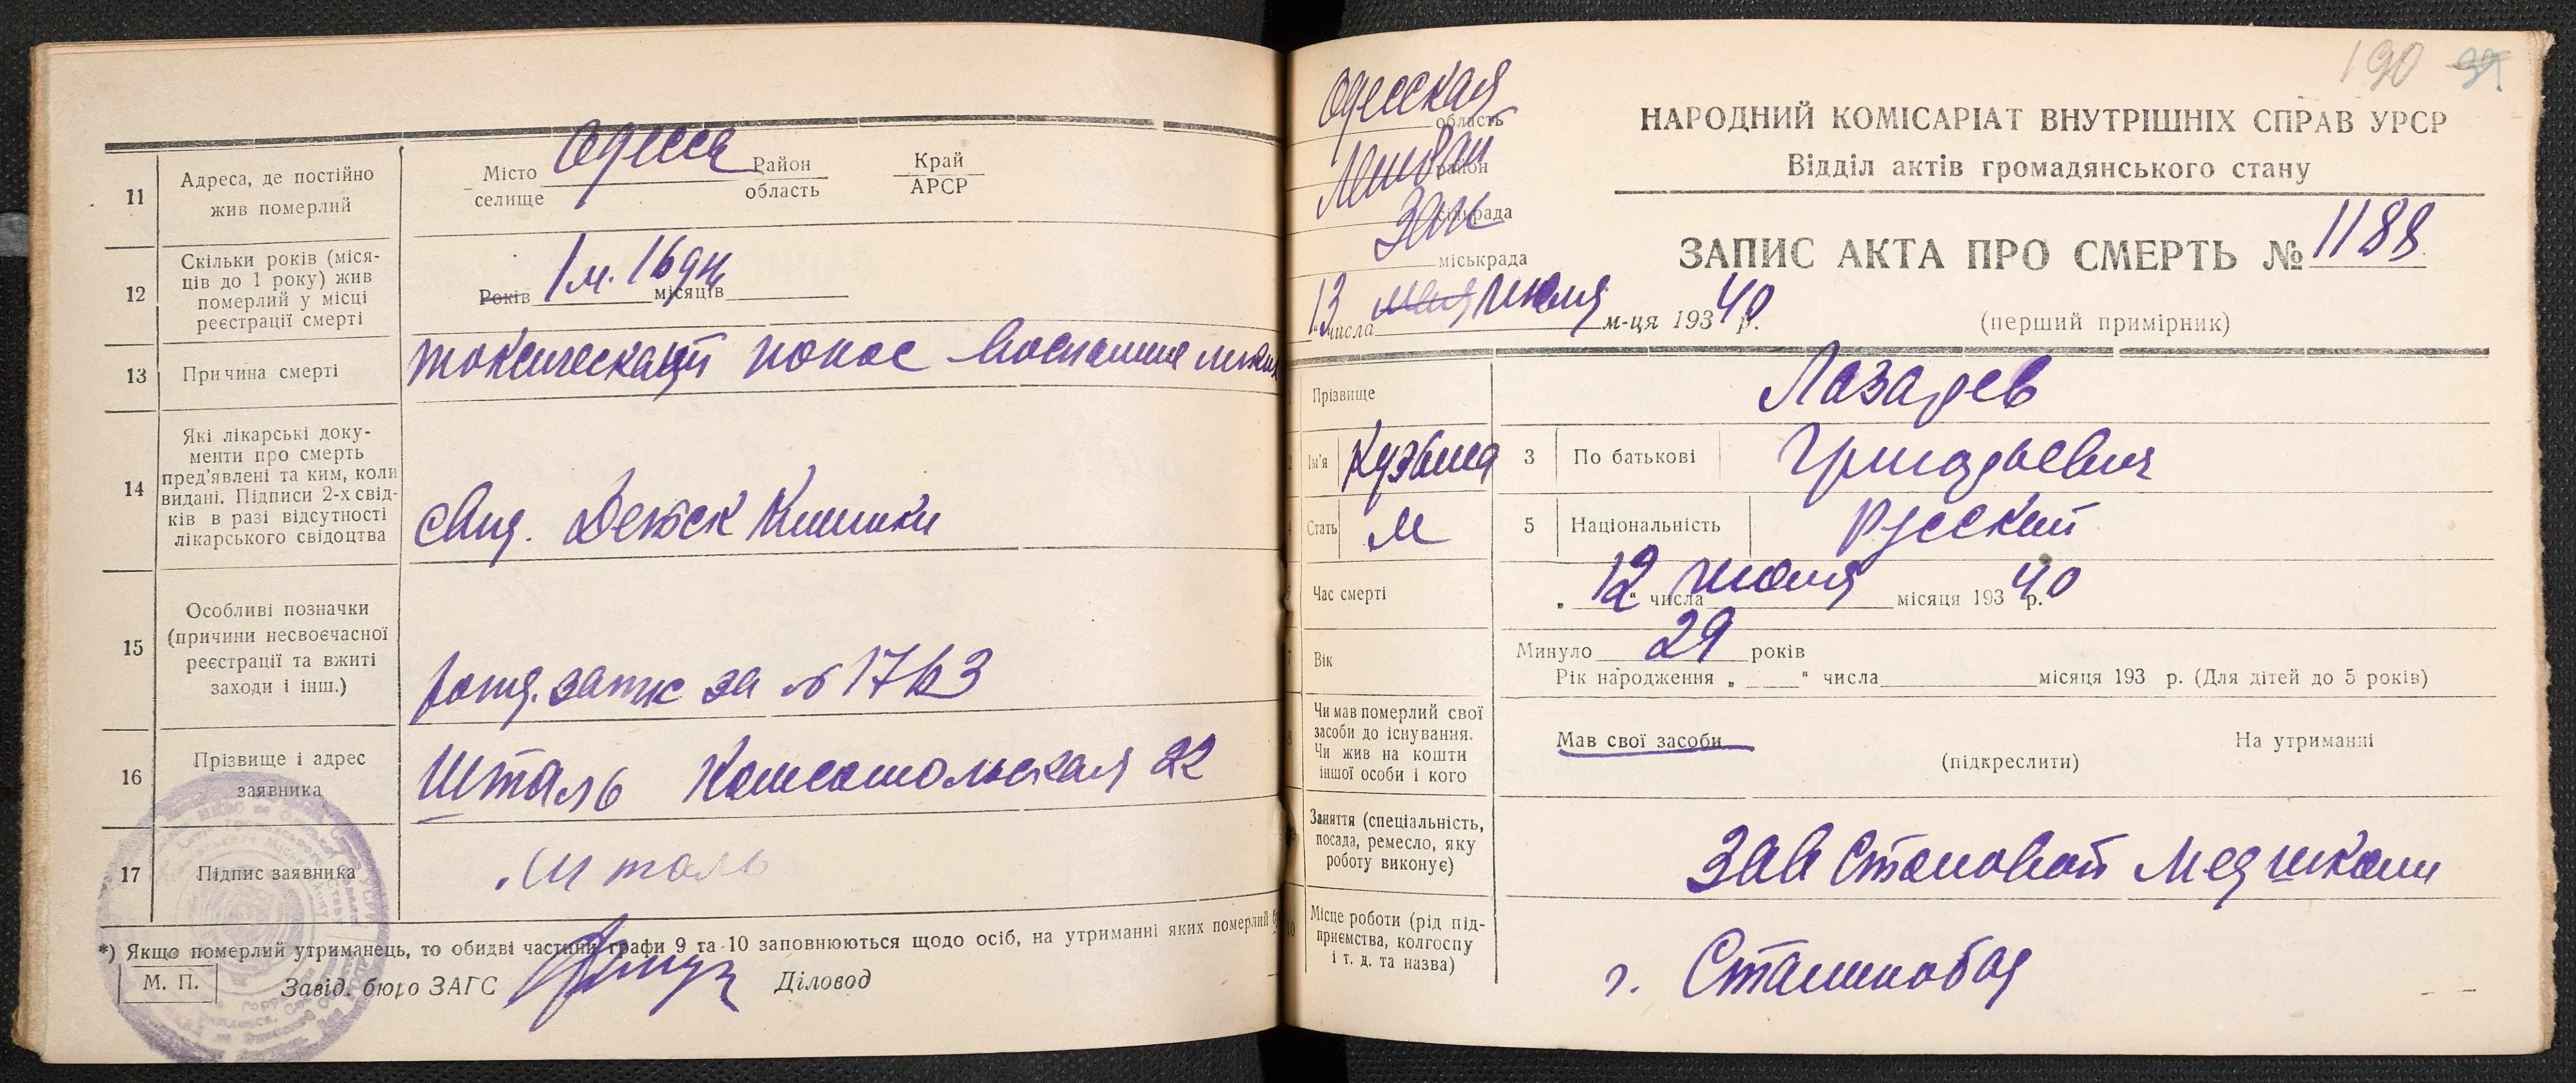 11 Адреса, де постійно жив померлий
Місто селище Одесса Район область Край АРСР
12 Скільки років (міся-
ців до 1 року) жив
померлий у місці
реєстрації смерті
Років 1 м. 16 дн місяців
13 Причина смерті токсический понос воспаление
14 Які лікарські доку-
менти про смерть
пред'явлені та ким, коли
видані. Підписи 2-х свід-
ків в разі відсутності
лікарського свідоцтва
свид. Детск Клиники
15 Особливі позначки
(причини несвоєчасної
реєстрації та вжиті
заходи і інш.)
запис за № 1763
16 Прізвище і адрес
заявника
Шталь Комсомольская 22
17 Підпис заявника Шталь
*) Якщо померлий утриманець, то обидві частини графи 9 та 10 заповнюються щодо осіб, на утриманні яких померлий
М. П. Завід. бюро ЗАГС Діловод
190 39
Одесская
область
район
ЗАГС
сільрада
міськрада
13 числа мая июля м-ця 193 40 р.
НАРОДНИЙ КОМІСАРІАТ ВНУТРІШНІХ СПРАВ УРСР
Відділ актів громадянського стану
ЗАПИС АКТА ПРО СМЕРТЬ № 1188
(перший примірник)
Прізвище Лазарев
2 Ім'я Кузьма 3 По батькові Григорьевич
4 Стать М 5 Національність Русский
Час смерті „12“ числа июля місяця 193 40 р.
7 Вік Минуло 29 років
Рік народження „ “ числа місяця 193 р. (Для дітей до 5 років)
8 Чи мав померлий свої
засоби до існування.
Чи жив на кошти
іншої особи і кого
Мав свої засоби На утриманні
(підкреслити)
Заняття (спеціальність,
посада, ремесло, яку
роботу виконує)
Зав Столовой Медшколи
10 Місце роботи (рід під-
приємства, колгоспу
і т. д. та назва)
г. Сталинобад